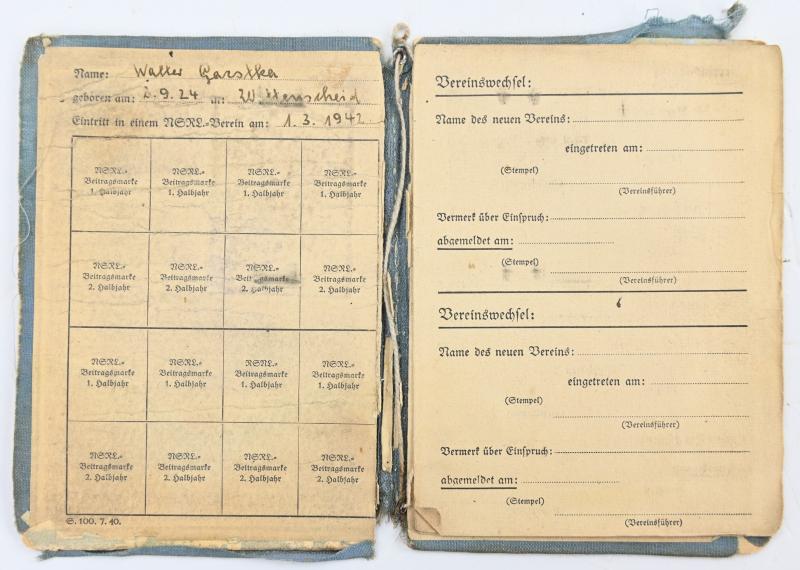 Name: Walter Garstka
geboren am: 2.9.24 in: Wattenscheid
Eintritt in einem NSRL.-Verein am: 1. 3. 1942
NSRL.- NSRL.- NSRL.- NSRL.-
Beitragsmarke Beitragsmarke Beitragsmarke Beitragsmarke
1. Halbjahr 1. Halbjahr 1. Halbjahr 1. Halbjahr
NSRL.- NSRL.- NSRL.- NSRL.-
Beitragsmarke Beitragsmarke Beitragsmarke Beitragsmarke
2. Halbjahr 2. Halbjahr 2. Halbjahr 2. Halbjahr
NSRL.- NSRL.- NSRL.- NSRL.-
Beitragsmarke Beitragsmarke Beitragsmarke Beitragsmarke
1. Halbjahr 1. Halbjahr 1. Halbjahr 1. Halbjahr
NSRL.- NSRL.- NSRL.- NSRL.-
Beitragsmarke Beitragsmarke Beitragsmarke Beitragsmarke
2. Halbjahr 2. Halbjahr 2. Halbjahr 2. Halbjahr
S. 100. 7. 40.
Vereinswechsel:
Name des neuen Vereins:
eingetreten am:
(Stempel)
(Vereinsführer)
Vermerk über Einspruch:
abgemeldet am:
(Stempel)
(Vereinsführer)
Vereinswechsel:
Name des neuen Vereins:
eingetreten am:
(Stempel)
(Vereinsführer)
Vermerk über Einspruch:
abgemeldet am:
(Stempel)
(Vereinsführer)